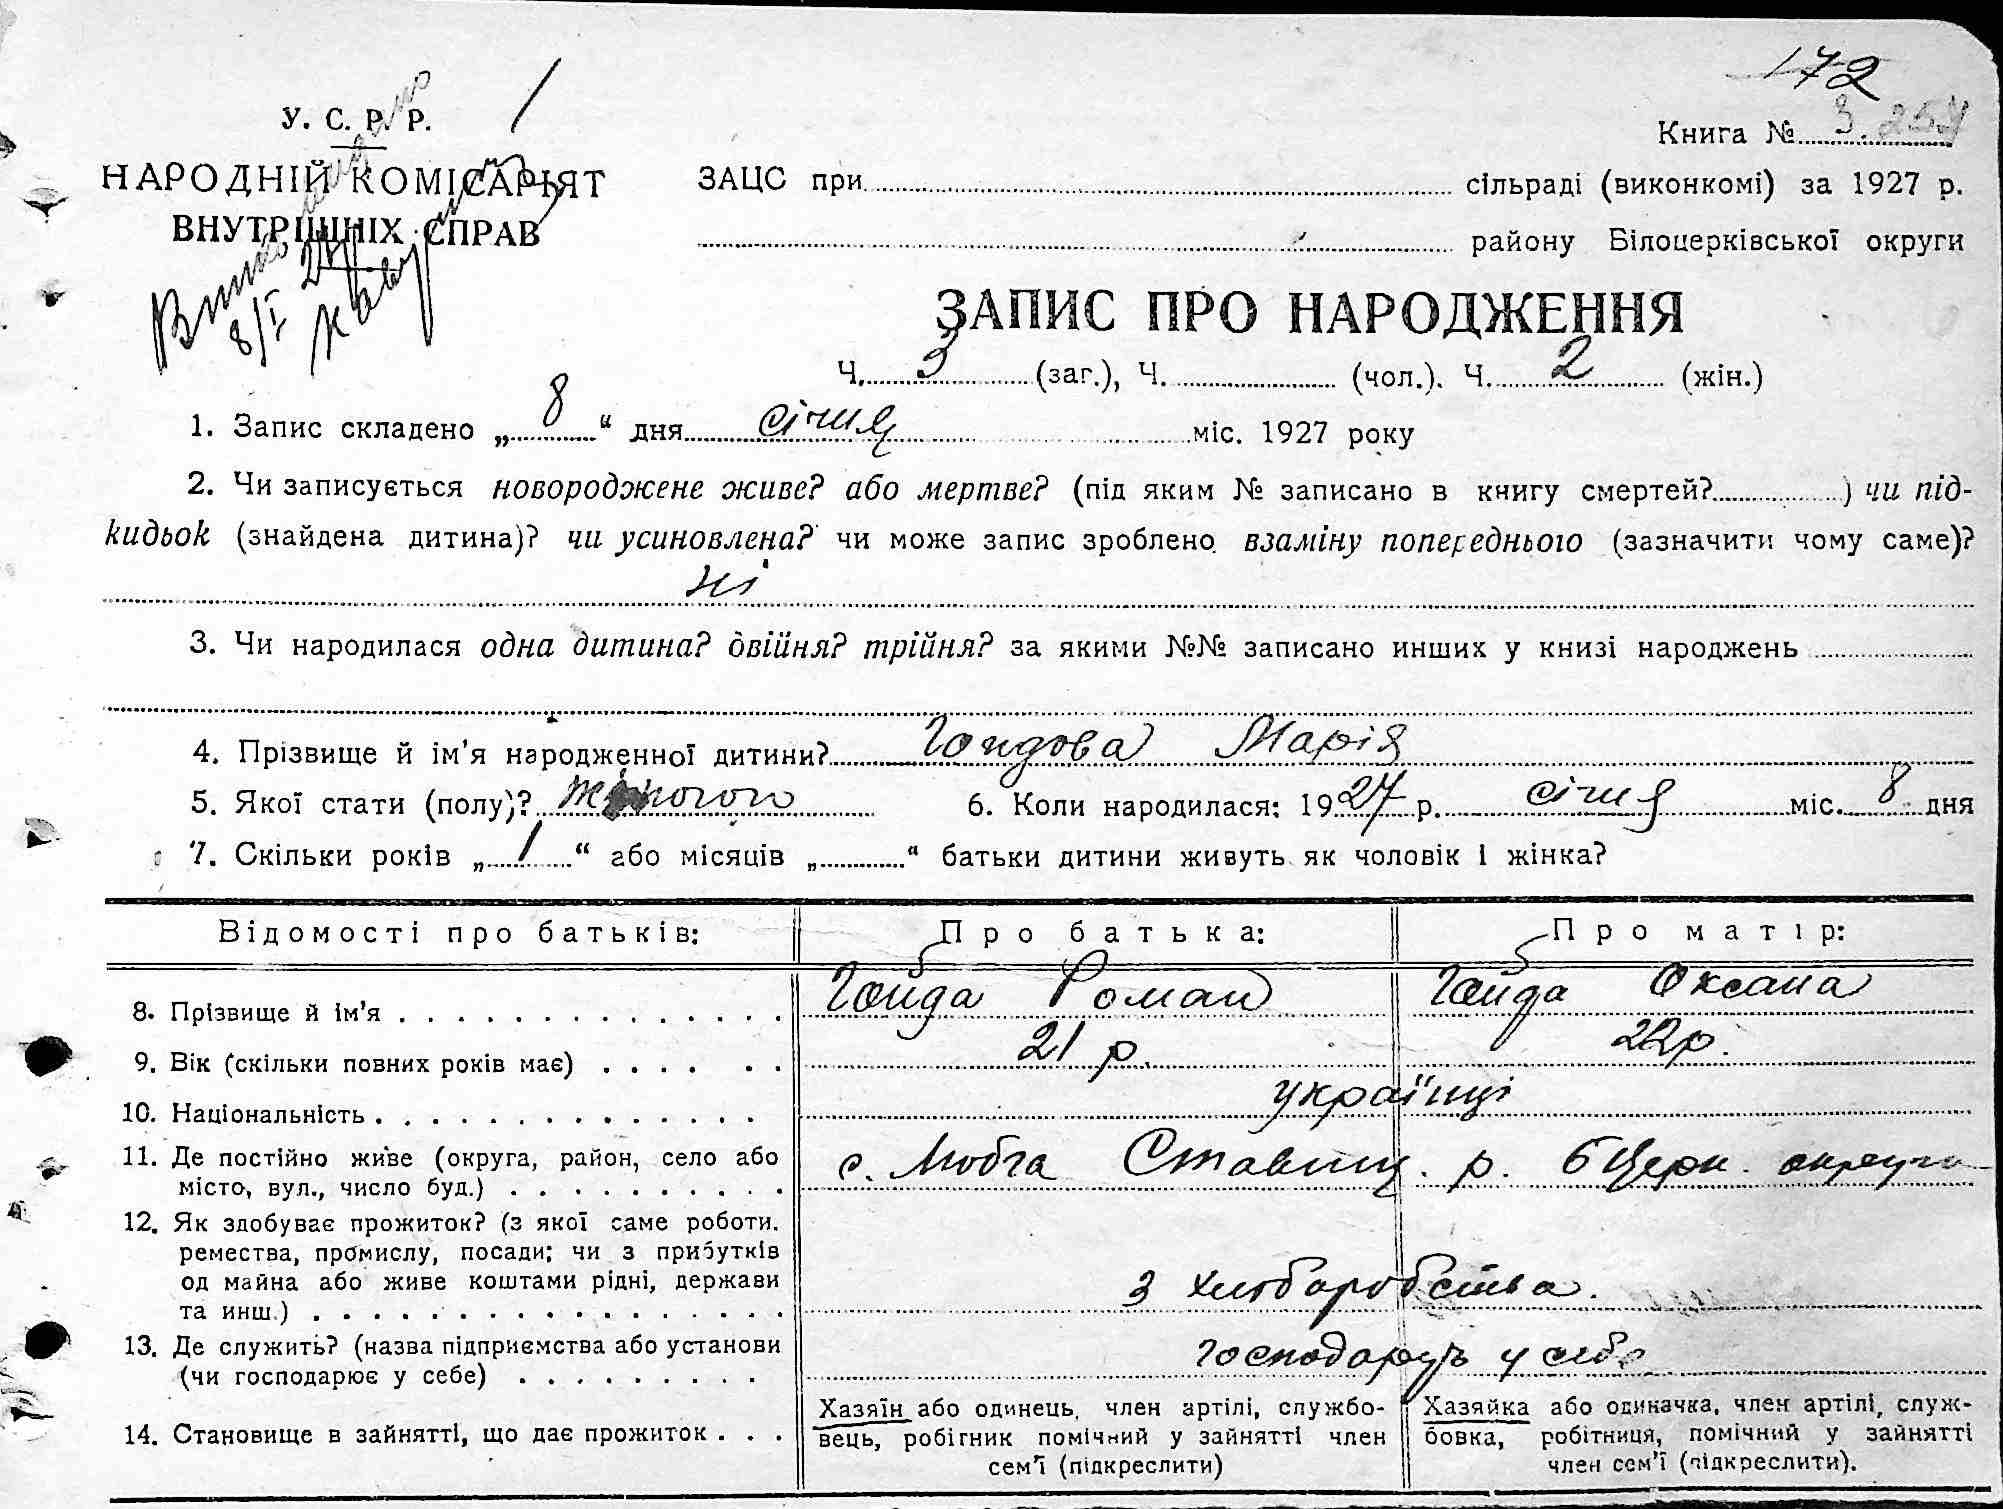 172
У. С. Р. Р.
Книга № 3
НАРОДНІЙ КОМІСАРІЯТ
ВНУТРІШНІХ СПРАВ
ЗАЦС при сільраді (виконкомі) за 1927 р.
району Білоцерківської округи
8/I 27
ЗАПИС ПРО НАРОДЖЕННЯ
Ч. 3 (заг.), Ч. (чол.). Ч. 2 (жін.)
1. Запис складено „ 8 “ дня січня міс. 1927 року
2. Чи записується новороджене живе? або мертве? (під яким № записано в книгу смертей? ) чи під-
кидьок (знайдена дитина)? чи усиновлена? чи може запис зроблено взаміну попереднього (зазначити чому саме)?
ні
3. Чи народилася одна дитина? двійня? трійня? за якими №№ записано инших у книзі народжень
4. Прізвище й ім’я народженної дитини? Гайдова Марія
5. Якої стати (полу)? жіночого 6. Коли народилася: 1927 р. січня міс. 8 дня
7. Скільки років „ 1 “ або місяців „ “ батьки дитини живуть як чоловік і жінка?
Відомості про батьків: Про батька: Про матір:
8. Прізвище й ім’я Гайда Роман Гайда Оксана
9. Вік (скільки повних років має) 21 р. 22 р.
10. Національність українці
11. Де постійно живе (округа, район, село або
місто, вул., число буд.) с. Любча Ставищ. р. БЦерк. округи
12. Як здобуває прожиток? (з якої саме роботи,
ремества, промислу, посади; чи з прибутків
од майна або живе коштами рідні, держави
та инш.) з хліборобства.
13. Де служить? (назва підприємства або установи
(чи господарює у себе) господарують у себе
14. Становище в зайнятті, що дає прожиток
Хазяїн або одинець, член артілі, службо-
вець, робітник помічний у зайнятті член
сем’ї (підкреслити)
Хазяйка або одиначка, член артілі, служ-
бовка, робітниця, помічний у зайнятті
член сем’ї (підкреслити).